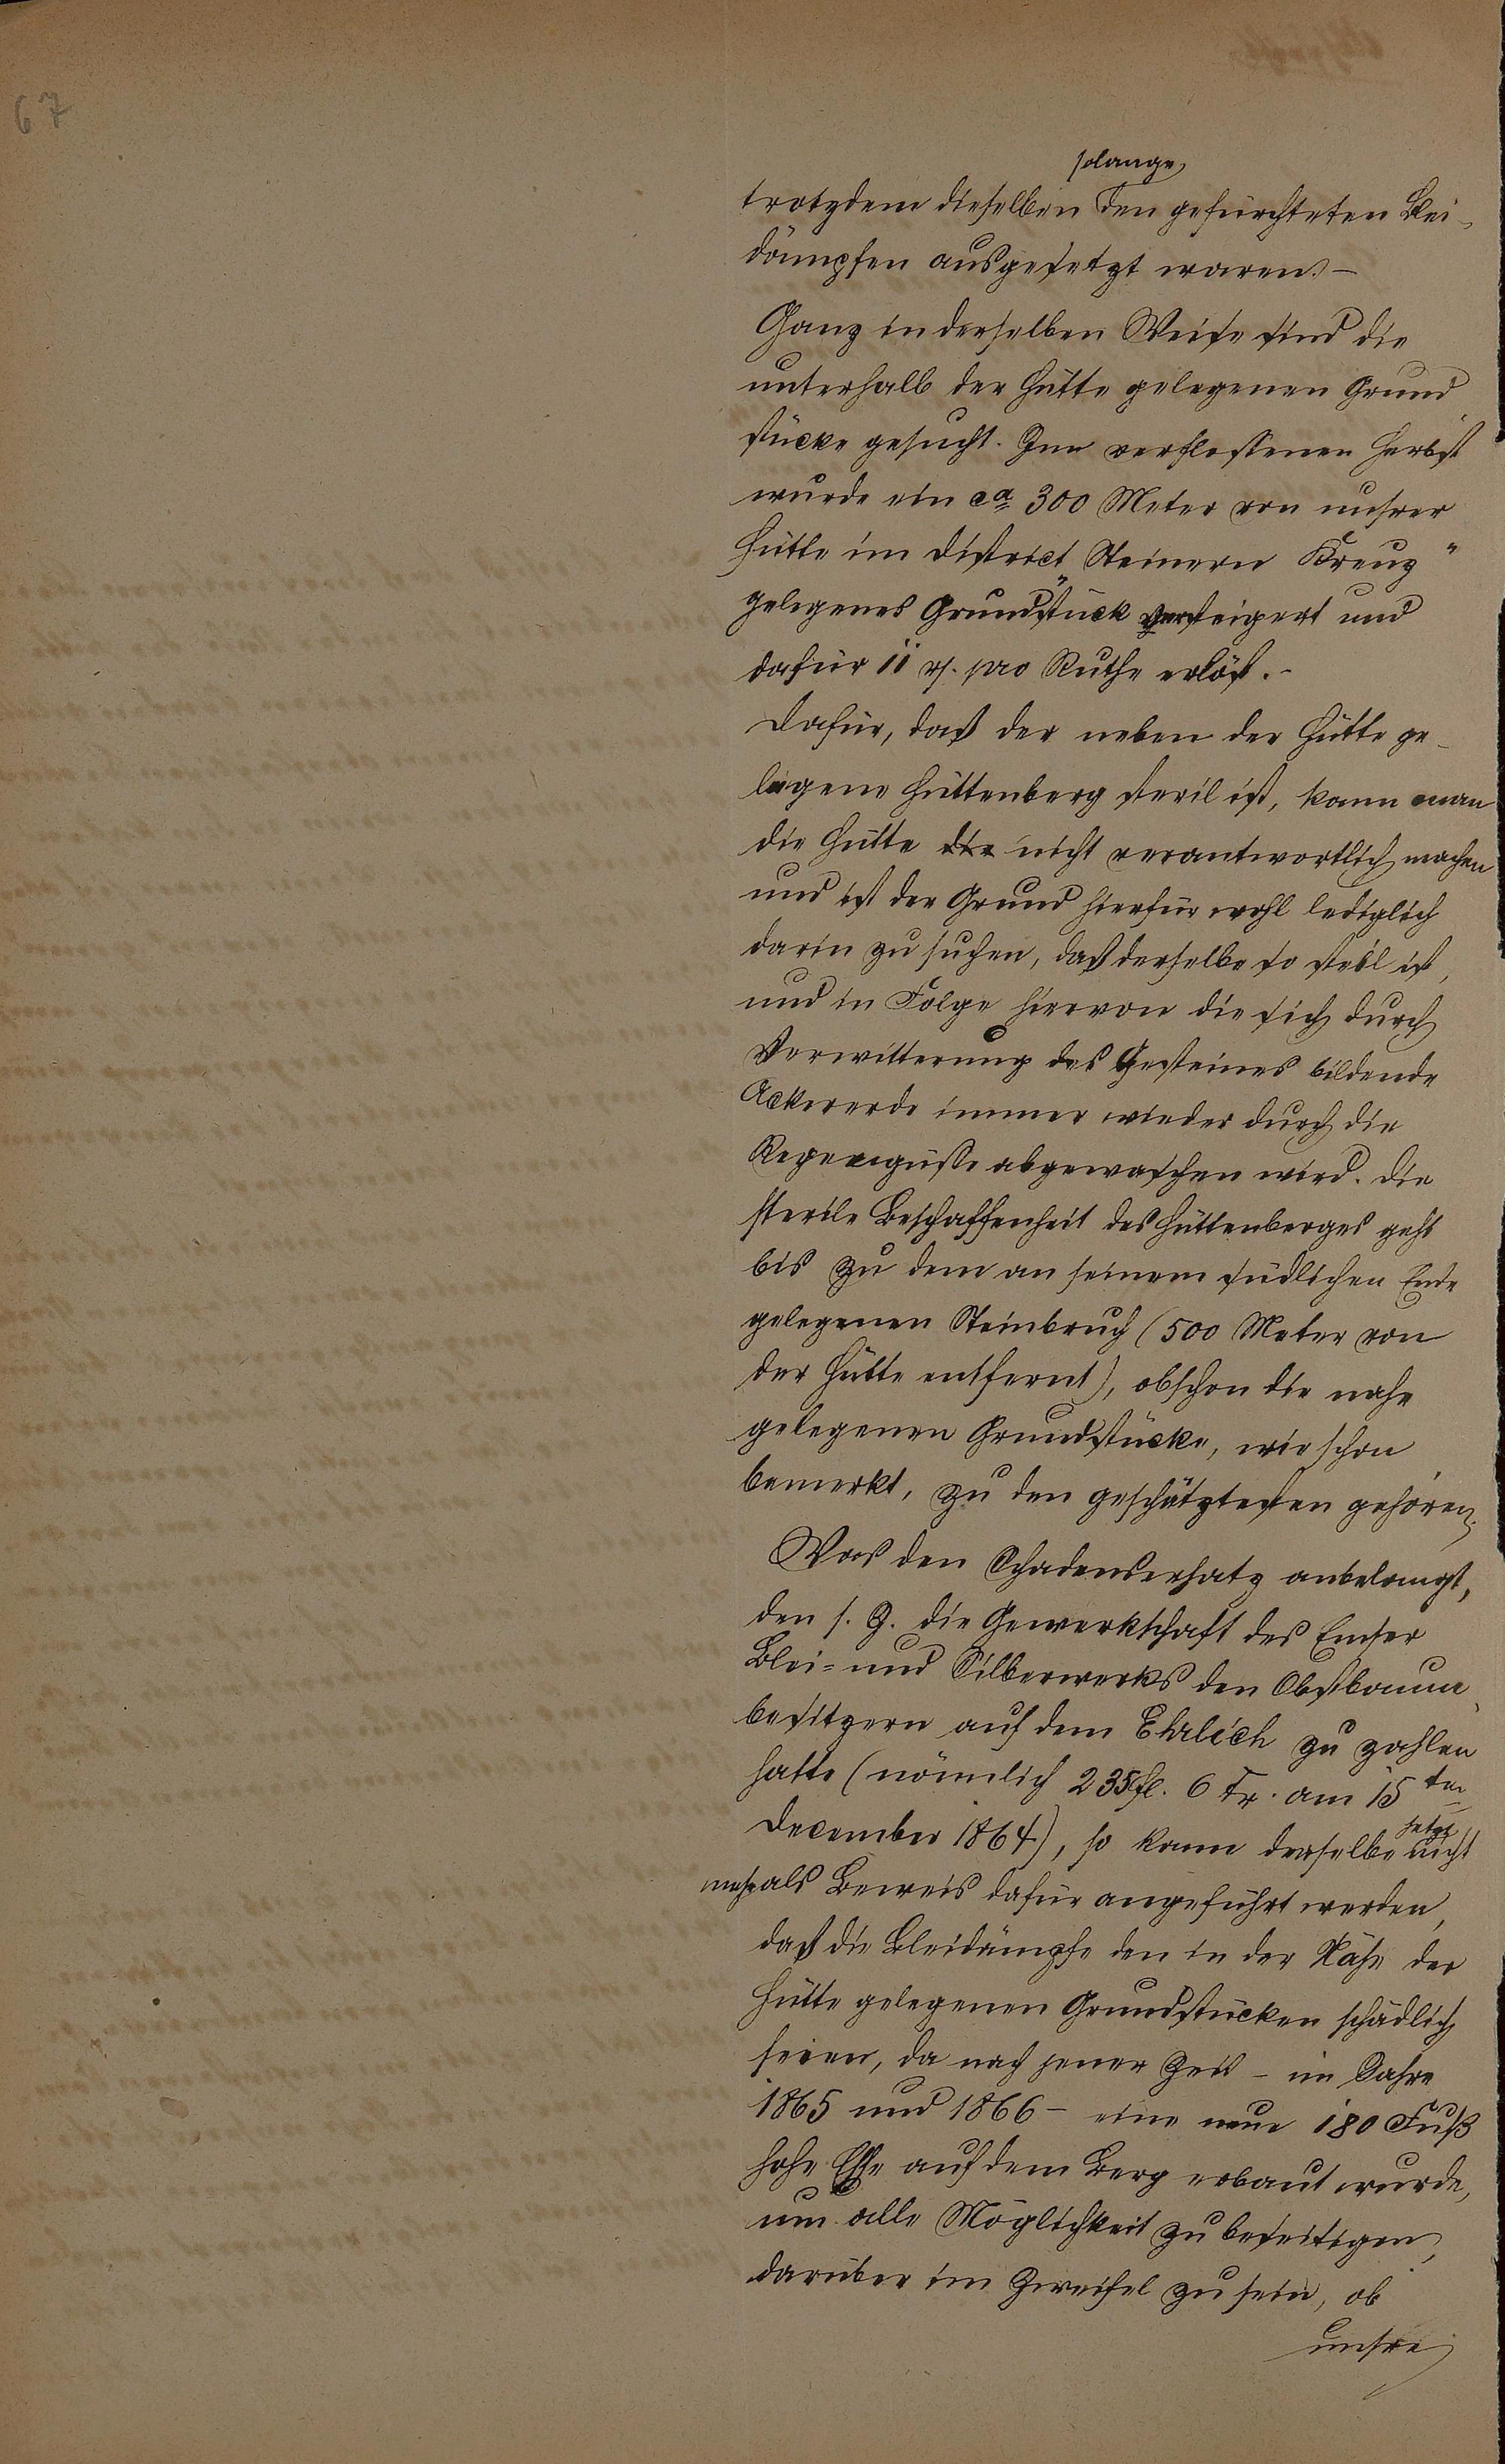 67
solange
trotzdem dieselben den gefürchteten Blei-
dämpfen ausgesetzt waren. -
Ganz in derselben Weise sind die
unterhalb der Hütte gelegenen Grund
stücke gesucht. Im verflossenen Herbst
wurde ein ca 300 Meter von unsrer
Hütte im District „Steinern Kreuz"
gelegenes Grundstück versteigert und
dafür 11 rf. pro Ruthe erlöst. -
Dafür, daß der neben der Hütte ge-
legene Hüttenberg steril ist, kann man
die Hütte die nicht verantwortlich machen
und ist der Grund hierfür wohl lediglich
darin zu suchen, daß derselbe so steil ist,
und in Folge hiervon die sich durch
Verwitterung des Gesteines bildende
Ackererde immer wieder durch die
Regengüsse abgewaschen wird. Die
sterile Beschaffenheit des Hüttenberges geht
bis zu dem an seinem südlichen Ende
gelegenen Steinbruch (500 Meter von
der Hütte entfernt), obschon die nahe
gelegenen Grundstücke, wie schon
bemerkt, zu den geschätztesten gehören.
Was den Schadenersatz anbelangt,
den s. Z. die Gewerkschaft des Emser
Blei- und Silberwerks den Obstbaum
besitzern auf dem Ehrlich zu zahlen
hatte (nämlich 235 fl. 6 Kr. am 15ten
jetzt
December 1864), so kann derselbe nicht
mehr als Beweis dafür angeführt werden,
daß die Bleidämpfe den in der Nähe der
Hütte gelegenen Grundstücken schädlich
seien, da nach jener Zeit - im Jahre
1865 und 1866 - eine neue 180 Fuß
hohe Esse auf dem Berg erbaut wurde,
um alle Möglichkeit zu beseitigen,
darüber im Zweifel zu sein, ob
unsre